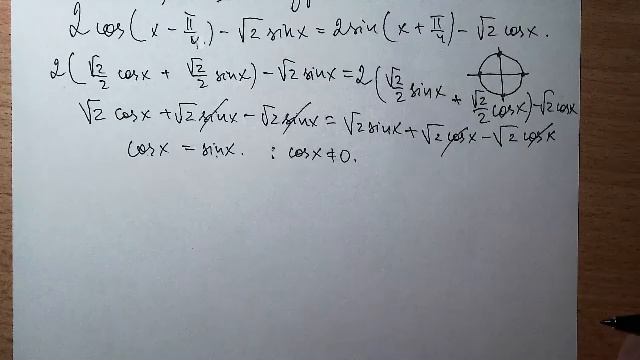 2 cos(x − π/4) − √2 sinx = 2sin(x + π/4) − √2 cosx.
2(√2/2 cosx + √2/2 sinx) − √2 sinx = 2(√2/2 sinx + √2/2 cosx) − √2 cosx
√2 cosx + √2 sinx − √2 sinx = √2 sinx + √2 cosx − √2 cosx
cosx = sinx. : cosx ≠ 0.